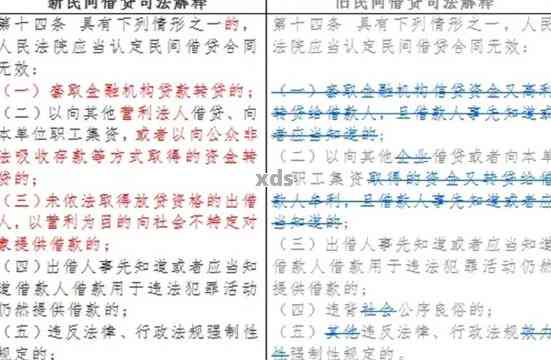 新民间借贷司法解释
第十四条 具有下列情形之一的，
人民法院应当认定民间借贷合同
无效：
（一）套取金融机构贷款转贷的；
（二）以向其他营利法人借贷、向
本单位职工集资，或者以向公众非
法吸收存款等方式取得的资金转
贷的；
（三）未依法取得放贷资格的出借
人，以营利为目的向社会不特定对
象提供借款的；
（四）出借人事先知道或者应当知
道借款人借款用于违法犯罪活动
仍然提供借款的；
（五）违反法律、行政法规强制性
规定的；
旧民间借贷司法解释
第十四条 具有下列情形之一，人
民法院应当认定民间借贷合同无
效：
（一）套取金融机构信贷资金又高利
转贷给借款人，且借款人事先知道或
者应当知道的；
（二）以向其他企业借贷或者向本单
位职工集资取得的资金又转贷给借
款人牟利，且借款人事先知道或者应
当知道的；
（三）出借人事先知道或者应当知
道借款人借款用于违法犯罪活动仍然
提供借款的；
（四）违背社会公序良俗的；
（五）其他违反法律、行政法规效力
性强制性规定的。
xds